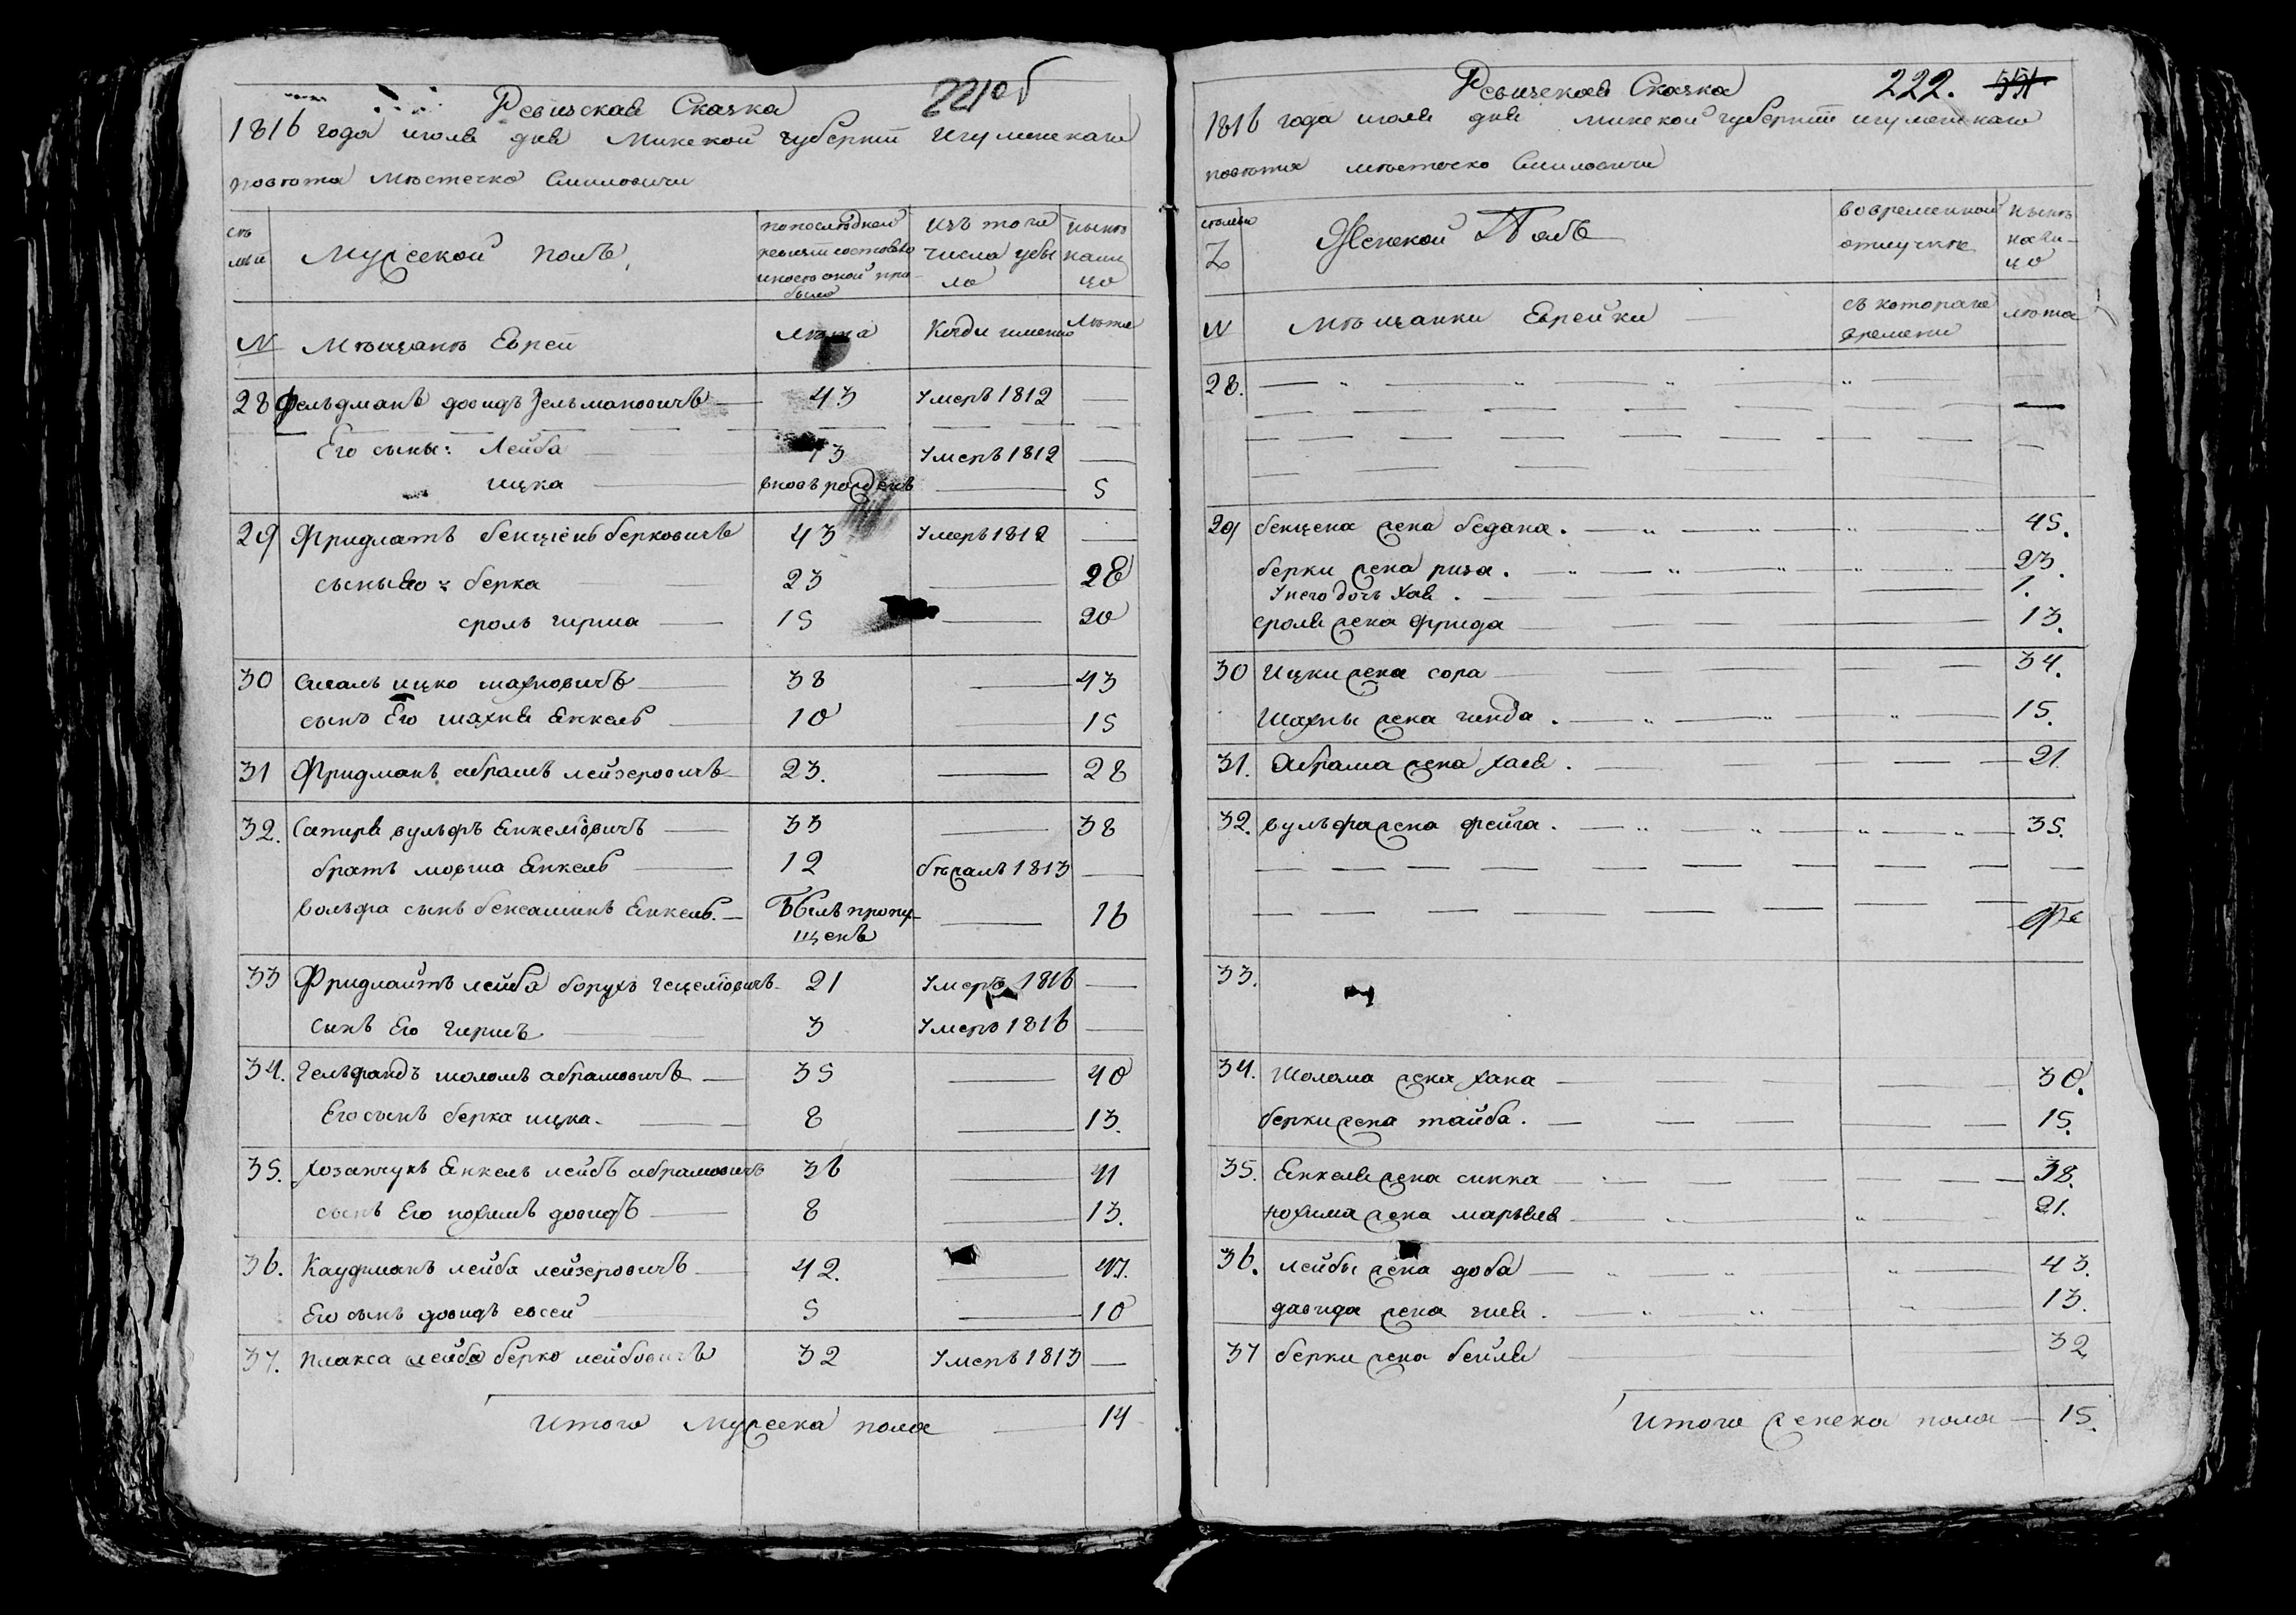 221об
Ревизская Сказка
1816 года июля дня Минской губернии Игуменскаго
повѣта Мѣстечка Смиловичи
Мужеской полъ
по последней ревизіи состояло и после оной прибыло
изъ того числа убыло
ныне на лицо
N Мѣщанѣ Евреи
лѣта
Когда именно
Лѣта
28 Фельдманъ довидъ Зельмановичъ — 43 Умеръ 1812 —
Его сыны: Лейба — 13 Умеръ 1812 —
ицка — вновь рожденъ — 5
29 Фридлатъ бенцiенъ берковичъ 43 Умеръ 1812 —
сыны Его: берка 23 — 28
сроль гирша — 15 — 20
30 Сигалъ ицко махновичъ — 38 — 43
сынъ Его шахна Енкель — 10 — 15
31 Фридманъ абрамъ лейзеровичъ — 23. — 28
32. Сапиръ вульфъ Енкелiовичъ — 33 — 38
братъ мовша Енкель — 12 бѣжалъ 1813 —
вольфа сынъ бенеаминъ Енкель. — Былъ пропу-
щенъ — 16
33 Фридлаитъ лейба борухъ гецелiовичъ — 21 Умеръ 1816 —
сынъ Его гиршъ — 3 Умеръ 1816 —
34. Гельфандъ шоломъ абрамовичъ — 35 — 40
Его сынъ берка ицка. — 8 — 13.
35. Хозанчукъ Енкель лейбъ абрамовичъ 36 — 41
сынъ Его нохимъ довидъ — 8 — 13.
36. Кауфманъ лейба лейзеровичъ — 42. — 47.
Его сынъ довидъ евсей — 5 — 10
37. плакса лейба берко лейбовичъ 32 Умеръ 1813 —
Итого Мужеска пола — 14
Ревизская Сказка 222.
1816 года июля дня Минской губернии игуменскаго
повѣта мѣстечко Смиловичи
Женской Полъ
во временной отлучкѣ
нынѣ на ли-
цо
N Мѣщанки Еврейки —
съ котораго
времени
лѣта
28.
29 бенцена жена бедана. — 45.
берки жена риза. — 23.
У него дочь Хая. — 1.
сроля жена фрида — 13.
30 Ицки жена сора — 34.
Шахны жена гинда. — 15.
31. Абрама жена хаея. — 21.
32. вульфа жена фейга. — 35.
33.
34. Шолома жена хана — 30.
берки жена тайба. — 15.
35. Енкеля жена сипка — 38.
нохима жена марьяся — 21.
36. лейбы жена доба — 43.
давида жена гися. — 13.
37 берки жена бейля — 32
Итого женска пола — 15.